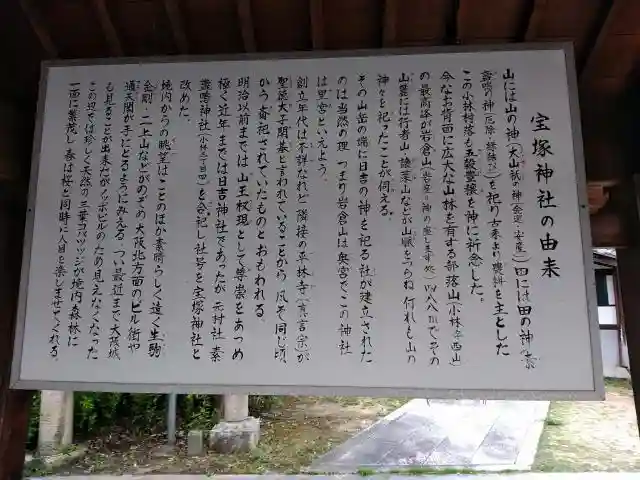 宝塚神社の由来
山には山の神（大山祇の神（命定・安産）田には田の神（素
盞鳴の神（厄除・縁談）を祀り古来より農耕を主とした
この小林村落も五穀豊穣を神に祈念した。
今なお背面に広大な山林を有する部落山（小林字西山）
の最高峰が岩倉山（岩座・神の座します処、四八八M）でその
山麓には行者山、譲葉山などが山脈をつらね何れも山の
神々を祀ったことが伺える。
その山岳の端に日吉の神を祀る社が建立された
のは当然の理、つまり岩倉山は奥宮でこの神社
は里宮といえよう。
創立年代は不詳なれど隣接の平林寺（真言宗）が
聖徳太子開基と言われていることから凡そ同じ頃、
から斎祀されていたものとおもわれる。
明治以前までは山王权現として尊崇をあつめ
極く近年までは日吉神社であったが元村社素
盞鳴神社（小林三丁目四）を合祀し社号を宝塚神社と
改めた。
境内からの眺望はことのほか素晴らしく遠く生駒、
金剛・二上山などがのぞめ大阪北方面のビル街や
通天閣が手にとるようにみえる。つい最近まで大阪城
も見ることが出来たがノッポビルのため見えなくなった
この辺では珍しく天然の三葉コバツツジが境内森林に
一面に繁茂し春は桜と同時に人目を楽しませてくれる。